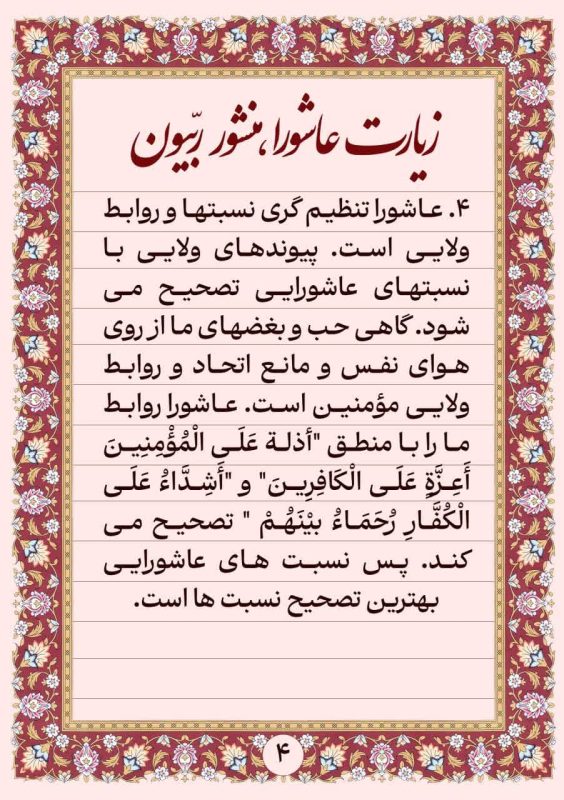 زیارت عاشورا، منشور ربّیون
۴. عاشورا تنظیم گری نسبتها و روابط
ولایی است. پیوندهای ولایی با
نسبتهای عاشورایی تصحیح می
شود. گاهی حب و بغضهای ما از روی
هوای نفس و مانع اتحاد و روابط
ولایی مؤمنین است. عاشورا روابط
ما را با منطق "أذلة عَلَى الْمُؤْمِنِينَ
أَعِزَّةٍ عَلَى الْكَافِرِينَ" و "أَشِدَّاءُ عَلَى
الْكُفَّارِ رُحَمَاءُ بيْنَهُمْ " تصحیح می
کند. پس نسبت های عاشورایی
بهترین تصحیح نسبت ها است.
۴